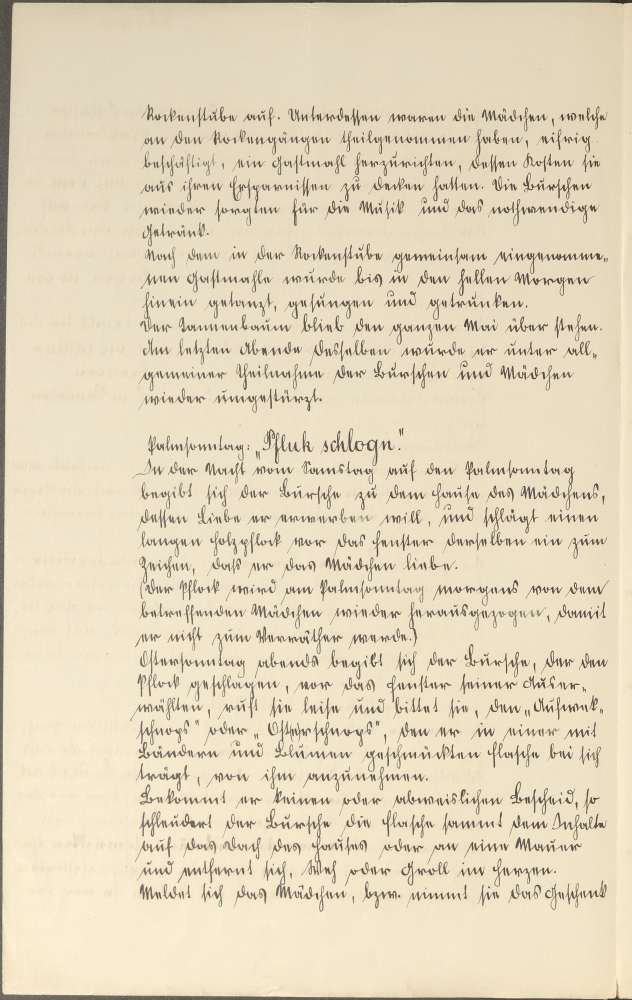 Rockenstube auf. Unterdessen waren die Mädchen, welche
an den Rockengängen theilgenommen haben, eifrig
beschäftigt, ein Gastmahl herzurichten, dessen Kosten sie
aus ihren Ersparnissen zu decken hatten. Die Burschen
wieder sorgten für die Musik und das nothwendige
Getränk.
Nach dem in der Rockenstube gemeinsam eingenomme-
nen Gastmahle wurde bis in den hellen Morgen
hinein getanzt, gesungen und getrunken.
Der Tannenbaum blieb den ganzen Mai über stehen.
Am letzten Abende desselben wurde er unter all-
gemeiner Theilnahme der Burschen und Mädchen
wieder umgestürzt.
Palmsonntag: „Pfluk schlogn."
In der Nacht vom Samstag auf den Palmsonntag
begibt sich der Bursche zu dem Hause des Mädchens,
dessen Liebe er erwerben will, und schlägt einen
langen Holzpflock vor das Fenster derselben ein zum
Zeichen, daß er das Mädchen liebe.
(Der Pflock wird am Palmsonntag morgens von dem
betreffenden Mädchen wieder herausgezogen, damit
er nicht zum Verräther werde.)
Ostersonntag abends begibt sich der Bursche, der den
Pflock geschlagen, vor das Fenster seiner Auser-
wählten, ruft sie leise und bittet sie, den „Aufwek-
schnops" oder „Ost(e)rschnops", den er in einer mit
Bändern und Blumen geschmückten Flasche bei sich
trägt, von ihm anzunehmen.
Bekommt er keinen oder abweislichen Bescheid, so
schleudert der Bursche die Flasche sammt dem Inhalte
auf das Dach des Hauses oder an eine Mauer
und entfernt sich, Weh oder Groll im Herzen.
Meldet sich das Mädchen, bzw. nimmt sie das Geschenk